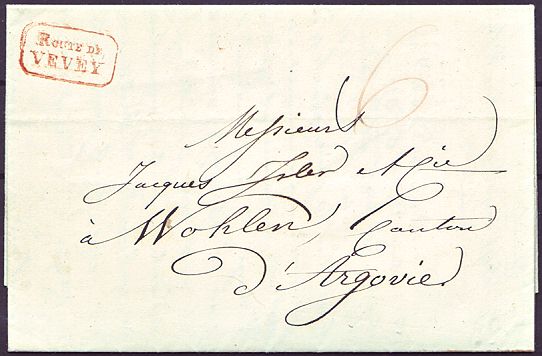 ROUTE DE
VEVEY
6
Messieurs
Jacques Isler et Cie
à Wohlen, Canton
d'Argovie